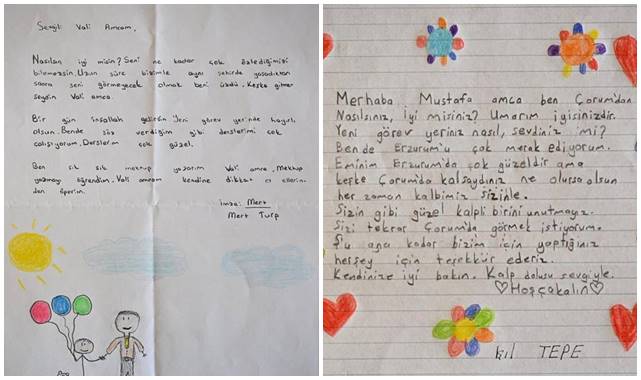 Sevgili Vali Amcam,
Nasılsın iyi misin? Seni ne kadar çok özlediğimizi
bilemezsin. Uzun süre bizimle aynı şehirde yaşadıktan
sonra seni görmeyecek olmak beni üzdü. Keşke gitme
seydin Vali amca.
Bir gün inşallah gelirsin. Yeni görev yerinde hayırlı
olsun. Bende söz verdiğim gibi derslerimi çok
çalışıyorum. Derslerim çok güzel.
Ben sık sık mektup yazarım Vali amca. Mektup
yazmayı öğrendim. Vali amcam kendine dikkat et ellerin
den öperim.
İmza: Mert
Mert Turp
Merhaba Mustafa amca ben Çorum'dan
Nasılsınız, iyi misiniz? Umarım iyisinizdir.
Yeni görev yeriniz nasıl, sevdiniz mi?
Ben de Erzurum'u çok merak ediyorum.
Eminim Erzurum'da çok güzeldir ama
keşke Çorum'da kalsaydınız ne olursa olsun
her zaman kalbimiz sizinle.
Sizin gibi güzel kalpli birini unutmayız.
Sizi tekrar Çorum'da görmek istiyorum.
Şu ana kadar bizim için yaptığınız
herşey için teşekkür ederiz.
Kendinize iyi bakın. Kalp dolusu sevgiyle.
Hoşçakalın
TEPE